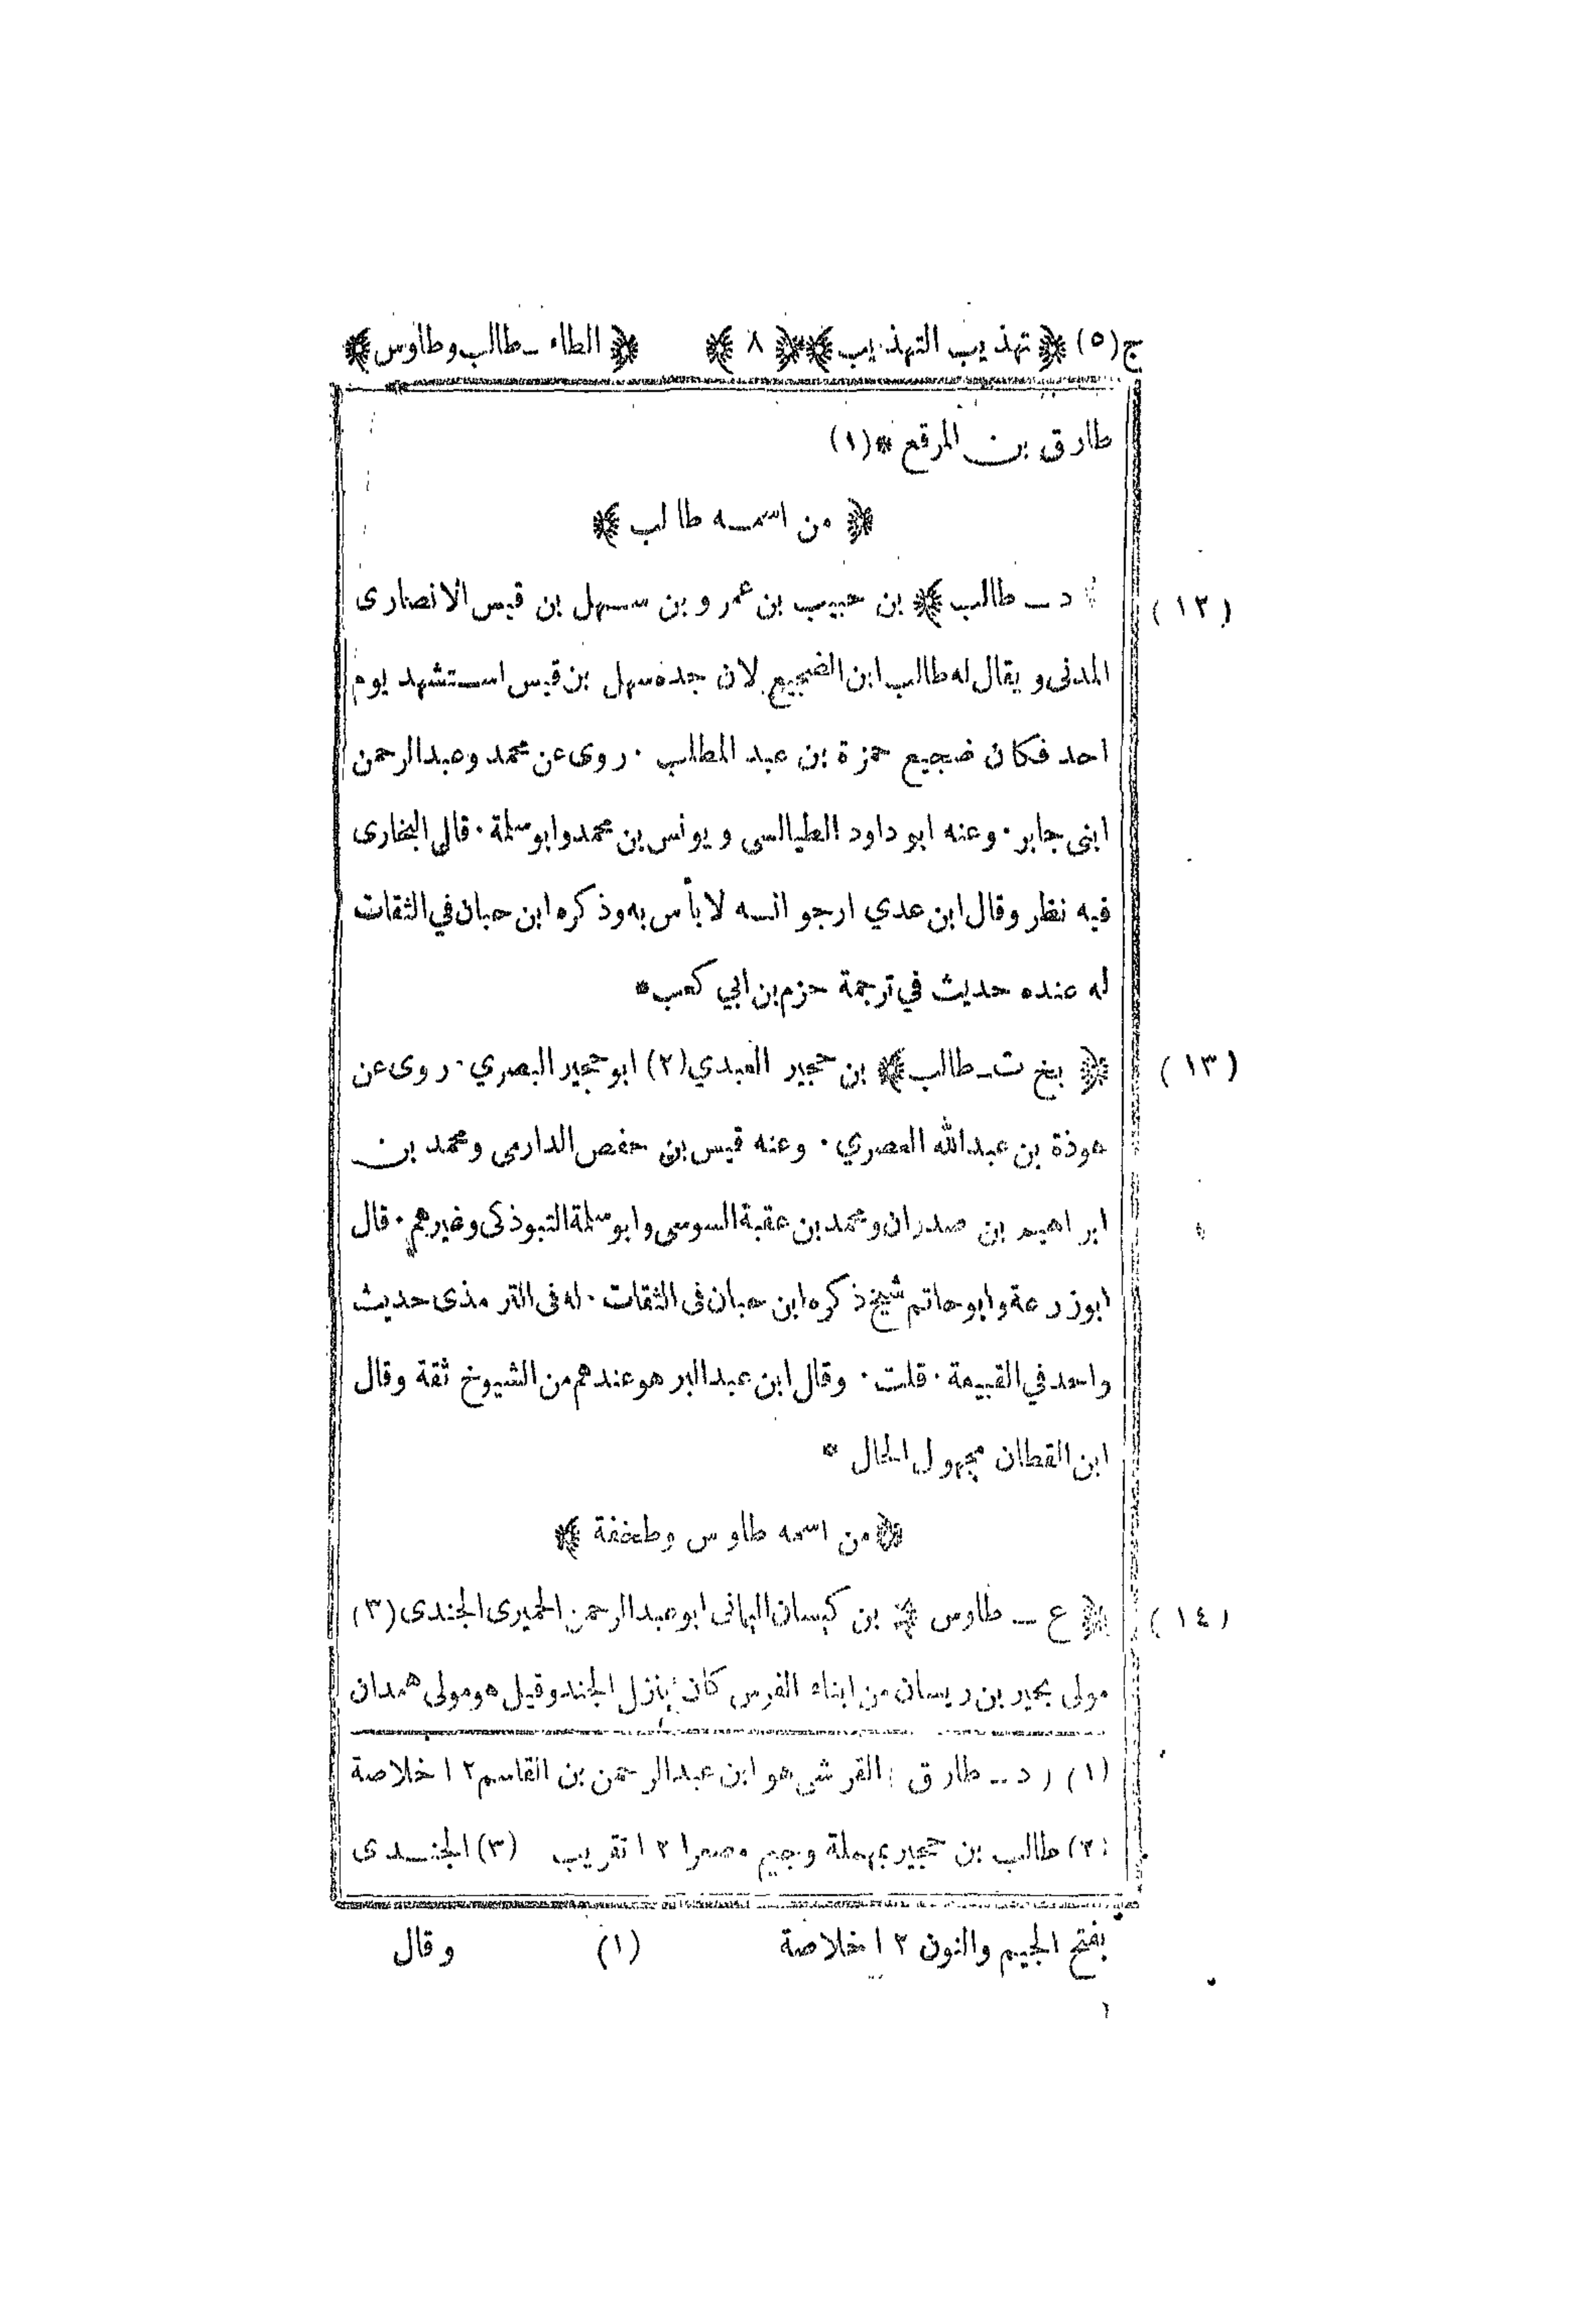 ج(٥) ﴿ تهذيب التهذيب ﴾ ﴿ ٨ ﴾ ﴿ الطاء ـ طالب وطاوس ﴾
طارق بن المرقع *(١)
﴿ من اسمه طالب ﴾
(١٢) د ـ طالب ﴾ بن حبيب بن عمرو بن سهل بن قيس الانصارى
المدنى و يقال له طالب ابن الضجيع لان جده سهل بن قيس استشهد يوم
احد فكان ضجيع حمزة بن عبد المطلب ٠ روى عن محمد وعبدالرحمن
ابنى جابر ٠ وعنه ابو داود الطيالسى و يونس بن محمد وابو سلمة ٠ قال البخارى
فيه نظر وقال ابن عدي ارجو انسه لا بأس به وذكره ابن حبان في الثقات
له عنده حديث في ترجمة حزم بن ابي كعب *
(١٣) ﴿ بخ ت ـ طالب ﴾ بن حجير العبدي (٢) ابو حجير البصري ٠ روى عن
هوذة بن عبدالله العصري ٠ وعنه قيس بن حفص الدارمى ومحمد بن
ابراهيم بن صدران ومحمد بن عقبة السوسى وابو سلمة التبوذكى وغيرهم ٠ قال
ابوزرعة وابو حاتم شيخ ذكره ابن حبان فى الثقات ٠ له فى الترمذى حديث
واحد في القبيعة ٠ قلت ٠ وقال ابن عبدالبر هو عندهم من الشيوخ ثقة وقال
ابن القطان مجهول الحال *
﴿ من اسمه طاوس وطخفة ﴾
(١٤) ﴿ ع ـ طاوس ﴾ بن كيسان اليمانى ابو عبدالرحمن الحميرى الجندى (٣)
مولى بحير بن ريسان من ابناء الفرس كان ينزل الجند وقيل هو مولى همدان
(١) د ـ طارق القرشى هو ابن عبدالرحمن بن القاسم ١٢ خلاصة
(٢) طالب بن حجير بمهملة وجيم مصغرا ١٢ تقريب (٣) الجندى
بفتح الجيم والنون ١٢ خلاصة (١) وقال